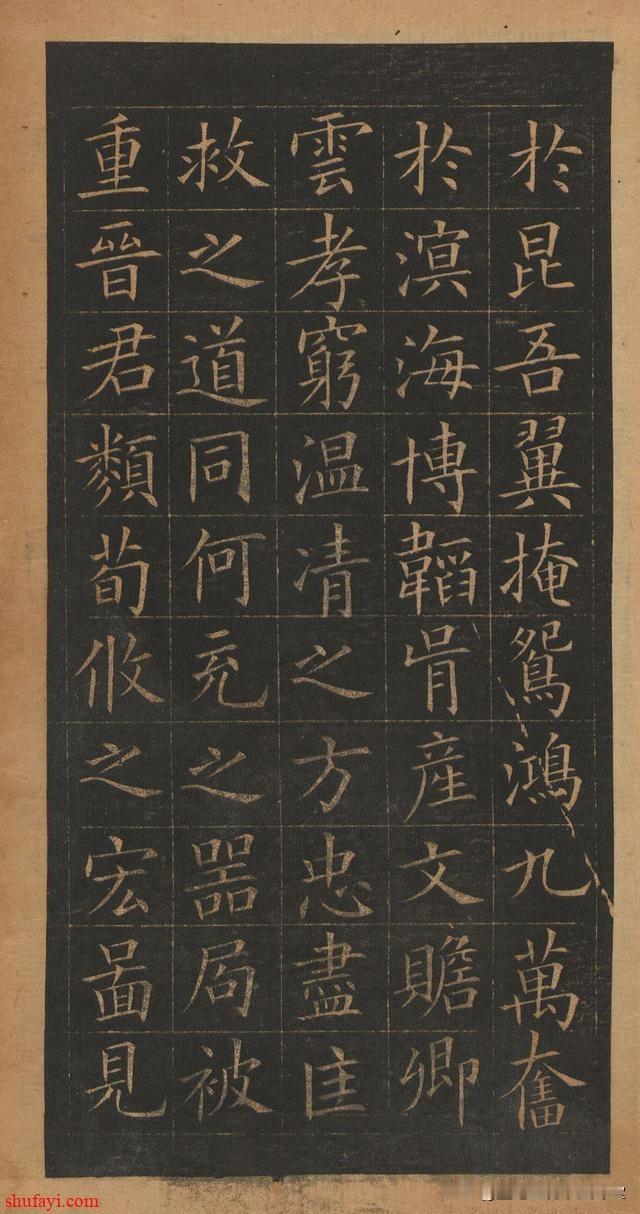 於昆吾翼掩鴛鴻九萬奮
於溟海博韜胄產文贍卿
雲孝窮温凊之方忠盡匡
救之道同何充之器局被
重晉君類荀攸之宏圖見
shufayi.com